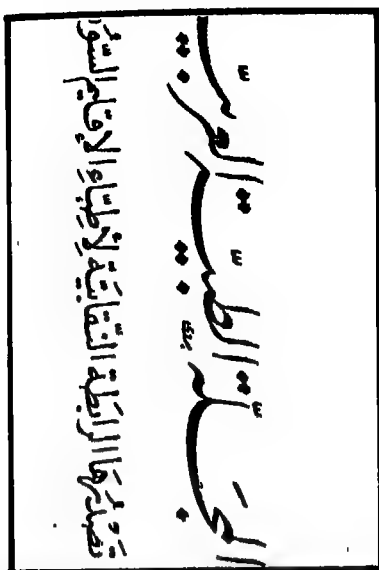 المجلّة الطبيّة العربيّة
تصدرها الرابطة النقابية لأطباء الإقليم السوري